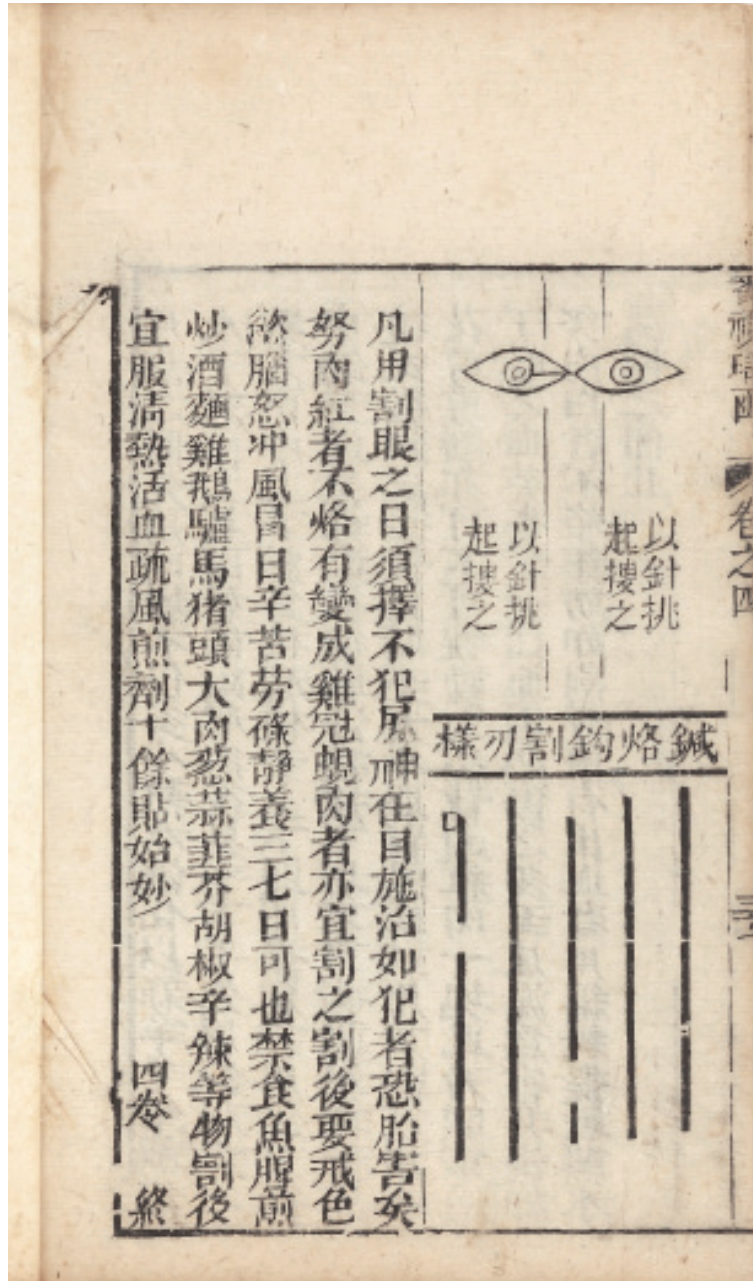 審視瑤函 卷之四
以針挑
起摟之
以針挑
起摟之
鍼烙鈎割刃樣
凡用割眼之日須擇不犯尻神在目施治如犯者恐胎害矣
努肉紅者不烙有變成雞冠蜆肉者亦宜割之割後要戒色
慾腦怒冲風冒日辛苦勞碌靜養三七日可也禁食魚腥煎
炒酒麵雞鵝驢馬猪頭大肉葱蒜韮芥胡椒辛辣等物割後
宜服清熱活血疏風煎劑十餘貼始妙 四卷 終